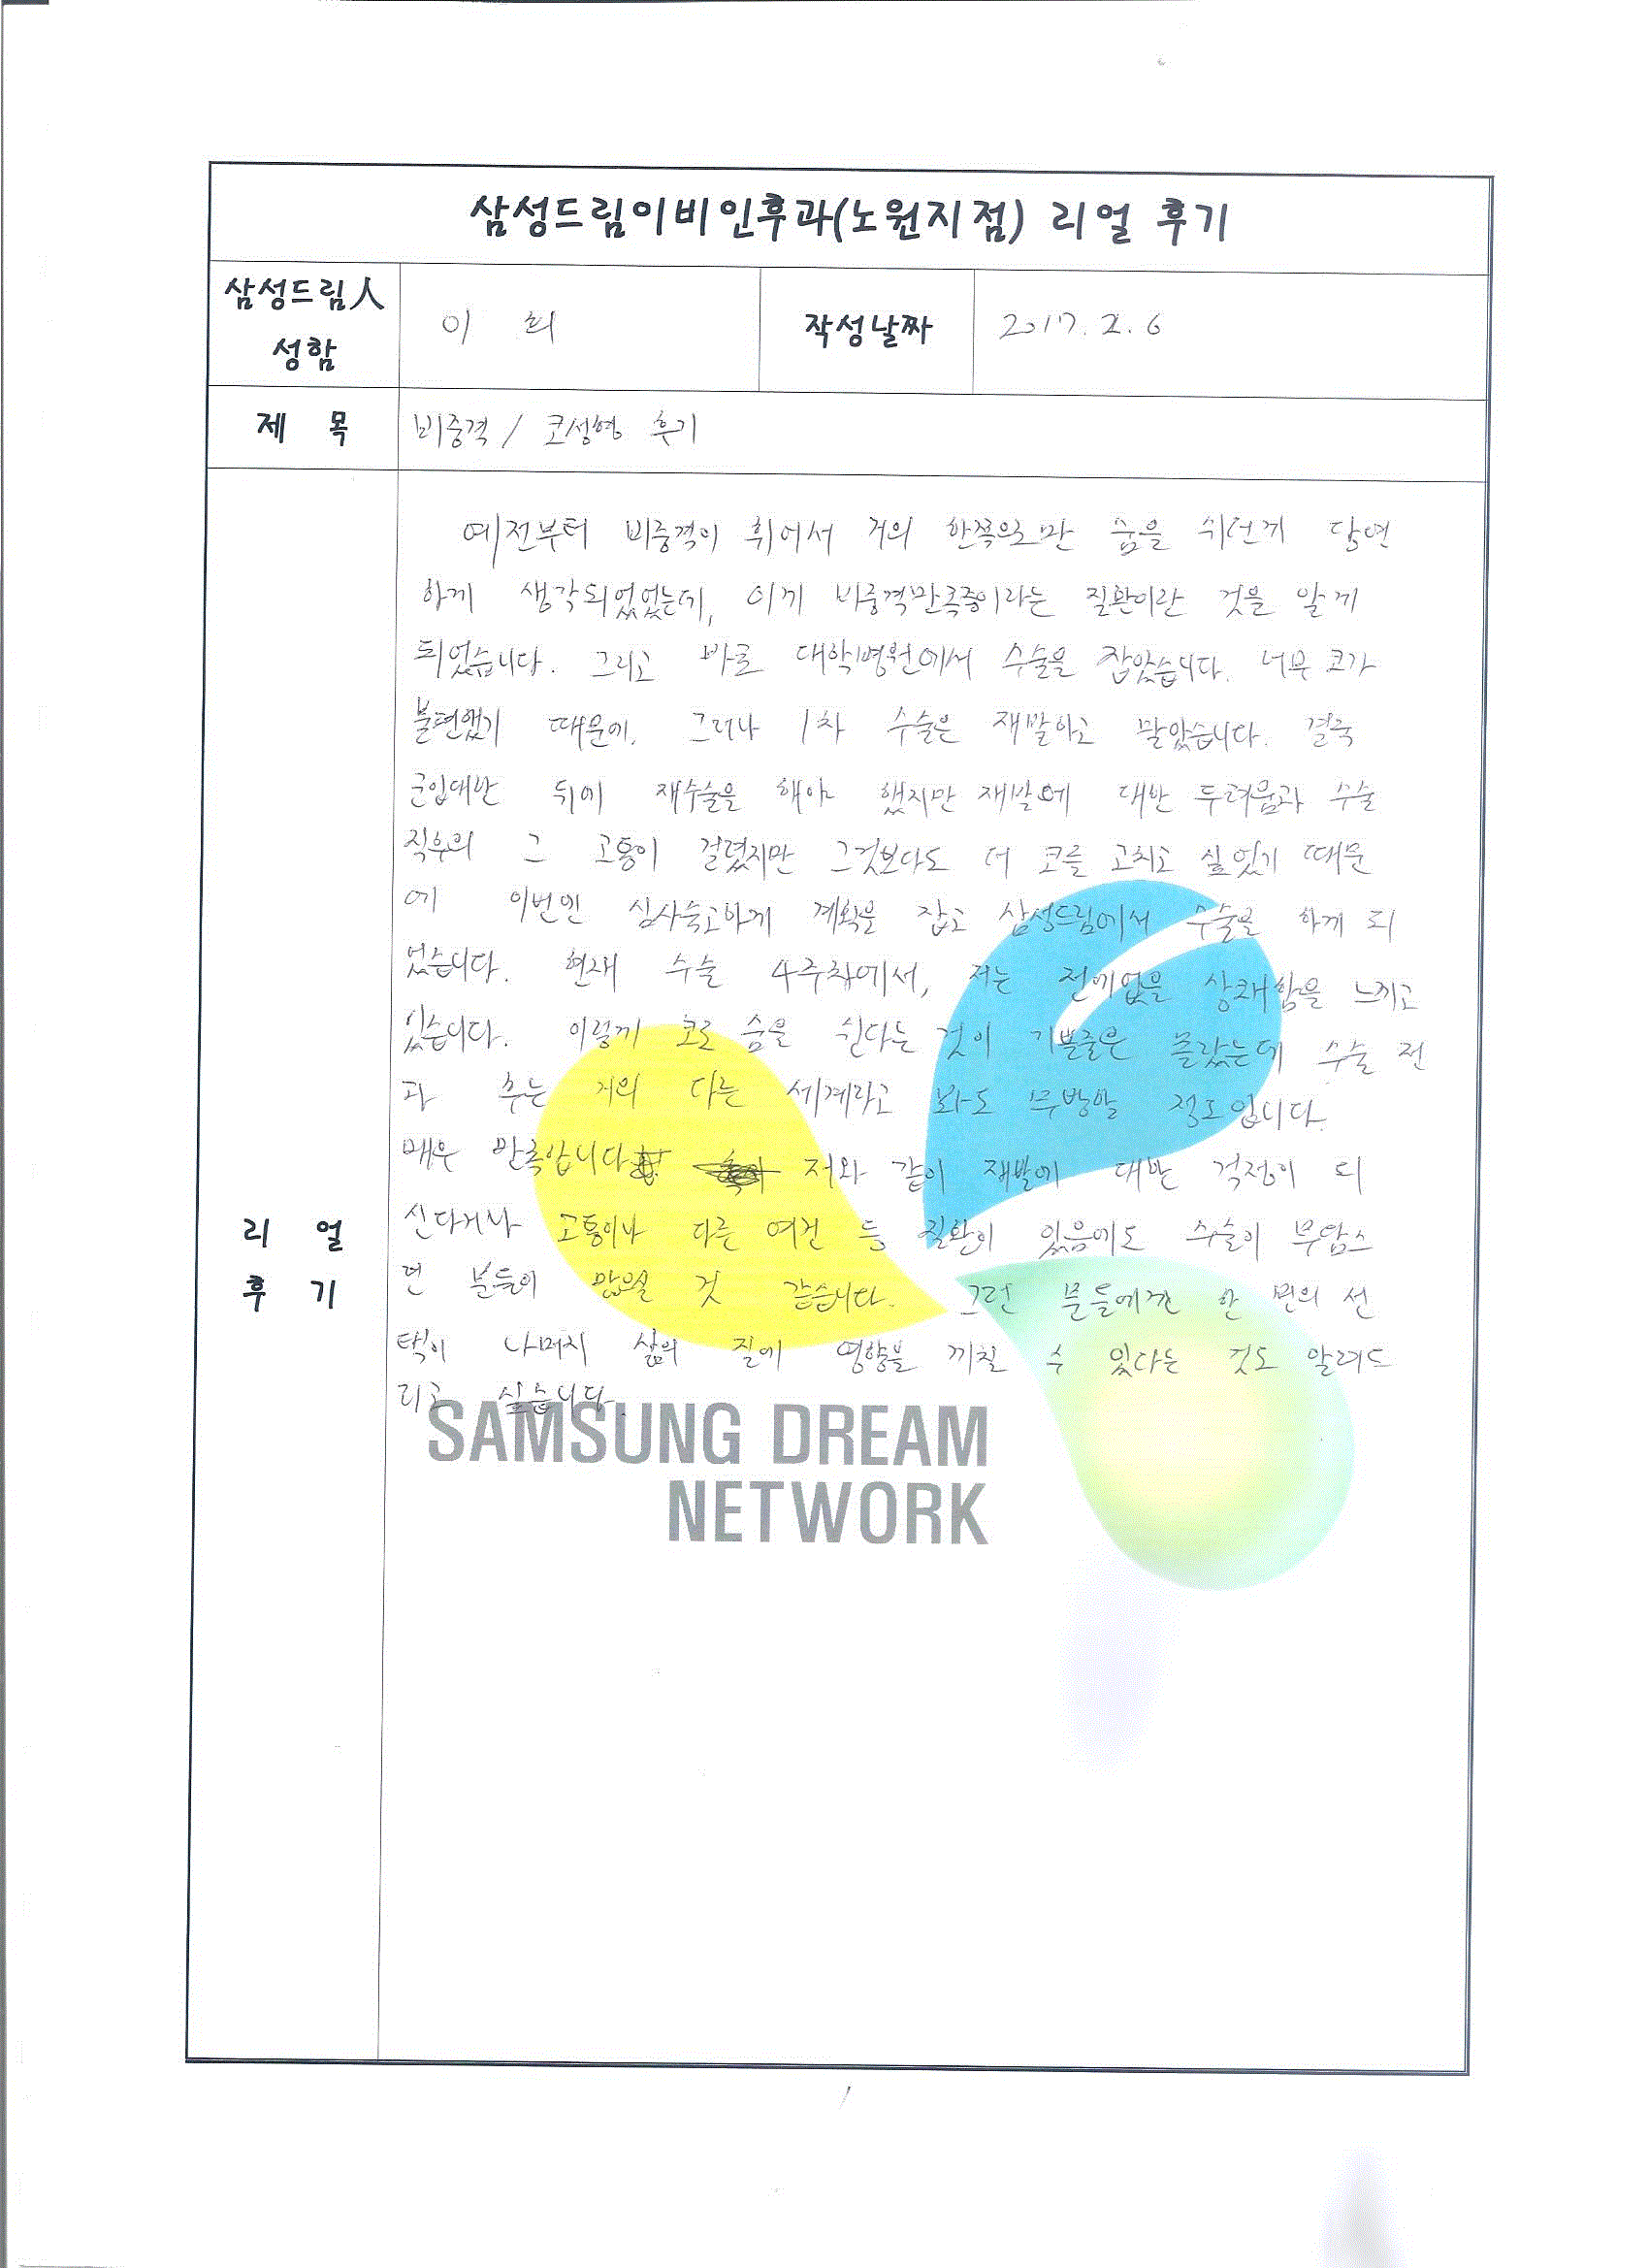 삼성드림이비인후과(노원지점) 리얼 후기
삼성드림人
성함
이 희
작성날짜
2017. 2. 6
제 목
비중격 / 코성형 후기
리 얼
후 기
예전부터 비중격이 휘어서 거의 한쪽으로만 숨을 쉬던게 당연
하게 생각되었었는데, 이게 비중격만곡증이라는 질환이란 것을 알게
되었습니다. 그리고 바로 대학병원에서 수술을 잡았습니다. 너무 코가
불편했기 때문에. 그러나 1차 수술은 재발하고 말았습니다. 결국
군입대한 뒤에 재수술을 해야 했지만 재발에 대한 두려움과 수술
직후의 그 고통이 걸렸지만 그것보다도 더 코를 고치고 싶었기 때문
에 이번엔 심사숙고하게 계획을 잡고 삼성드림에서 수술을 하게 되
었습니다. 현재 수술 4주차에서, 저는 전에없을 상쾌함을 느끼고
있습니다. 이렇게 코로 숨을 쉰다는 것이 기쁠줄은 몰랐는데 수술 전
과 후는 거의 다른 세계라고 봐도 무방할 정도입니다.
매우 만족합니다 저와 같이 재발에 대한 걱정이 되
신다거나 고통이나 다른 여건 등 질환이 있음에도 수술이 부담스
런 분들이 많으실 것 같습니다. 그런 분들에겐 한 번의 선
택이 나머지 삶의 질에 영향을 끼칠 수 있다는 것도 알려드
리고 싶습니다.
SAMSUNG DREAM
NETWORK